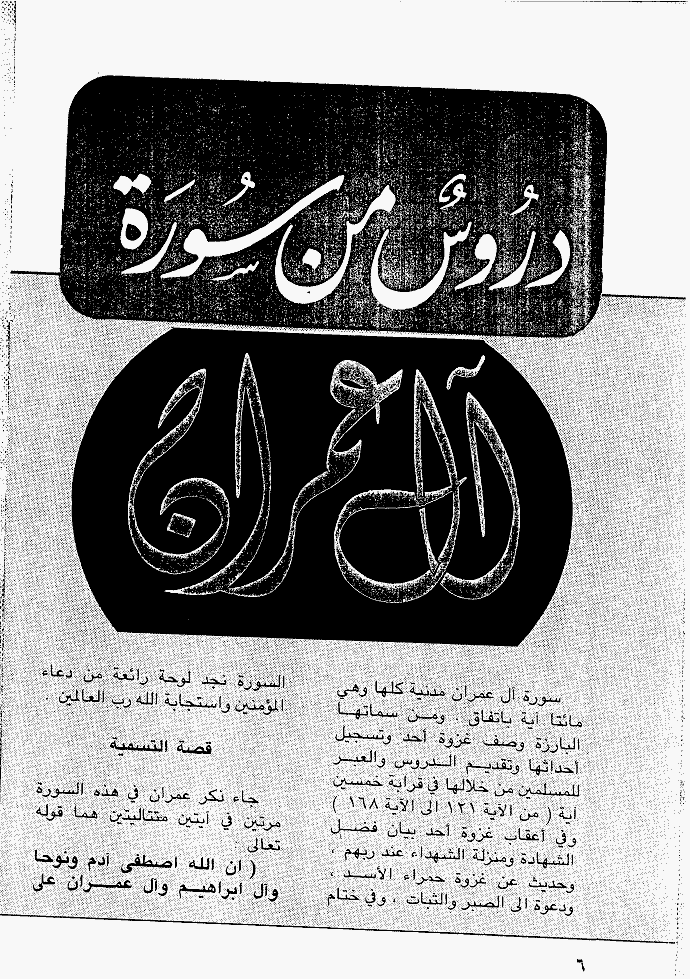 دُرُوسٌ من سُورَة
آل عمران
سورة آل عمران مدنية كلها وهي
مائتا آية باتفاق . ومن سماتها
البارزة وصف غزوة أحد وتسجيل
أحداثها وتقديم الدروس والعبر
للمسلمين من خلالها في قرابة خمسين
آية ( من الآية ١٢١ الى الآية ١٦٨ )
وفي أعقاب غزوة أحد بيان فضل
الشهادة ومنزلة الشهداء عند ربهم ،
وحديث عن غزوة حمراء الأسد ،
ودعوة الى الصبر والثبات ، وفي ختام
السورة نجد لوحة رائعة من دعاء
المؤمنين واستجابة الله رب العالمين .
قصة التسمية
جاء نكر عمران في هذه السورة
مرتين في آيتين متتاليتين هما قوله
تعالى
( ان الله اصطفى آدم ونوحا
وآل ابراهيم وآل عمران على
٦